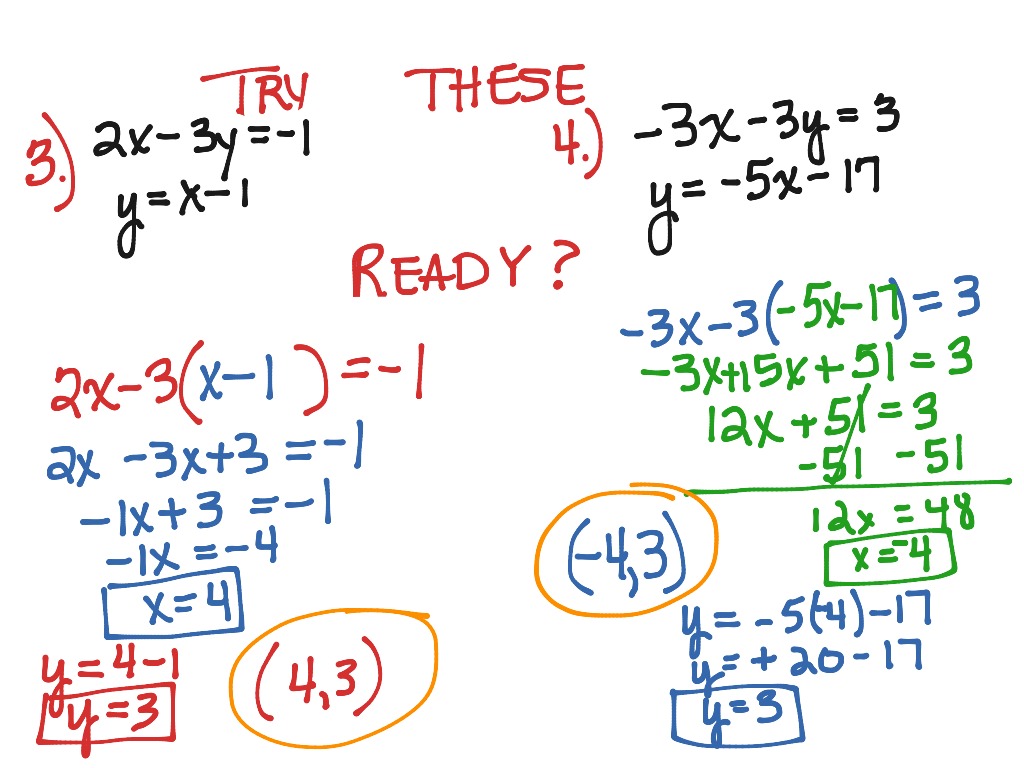 TRY THESE
3.) 2x - 3y = -1
y = x - 1
4.) -3x - 3y = 3
y = -5x - 17
READY?
2x - 3(x - 1) = -1
2x - 3x + 3 = -1
-1x + 3 = -1
-1x = -4
x = 4
y = 4 - 1
y = 3
(4,3)
-3x - 3(-5x - 17) = 3
-3x + 15x + 51 = 3
12x + 51 = 3
-51 -51
12x = 48
x = -4
(-4,3)
y = -5(-4) - 17
y = +20 - 17
y = 3